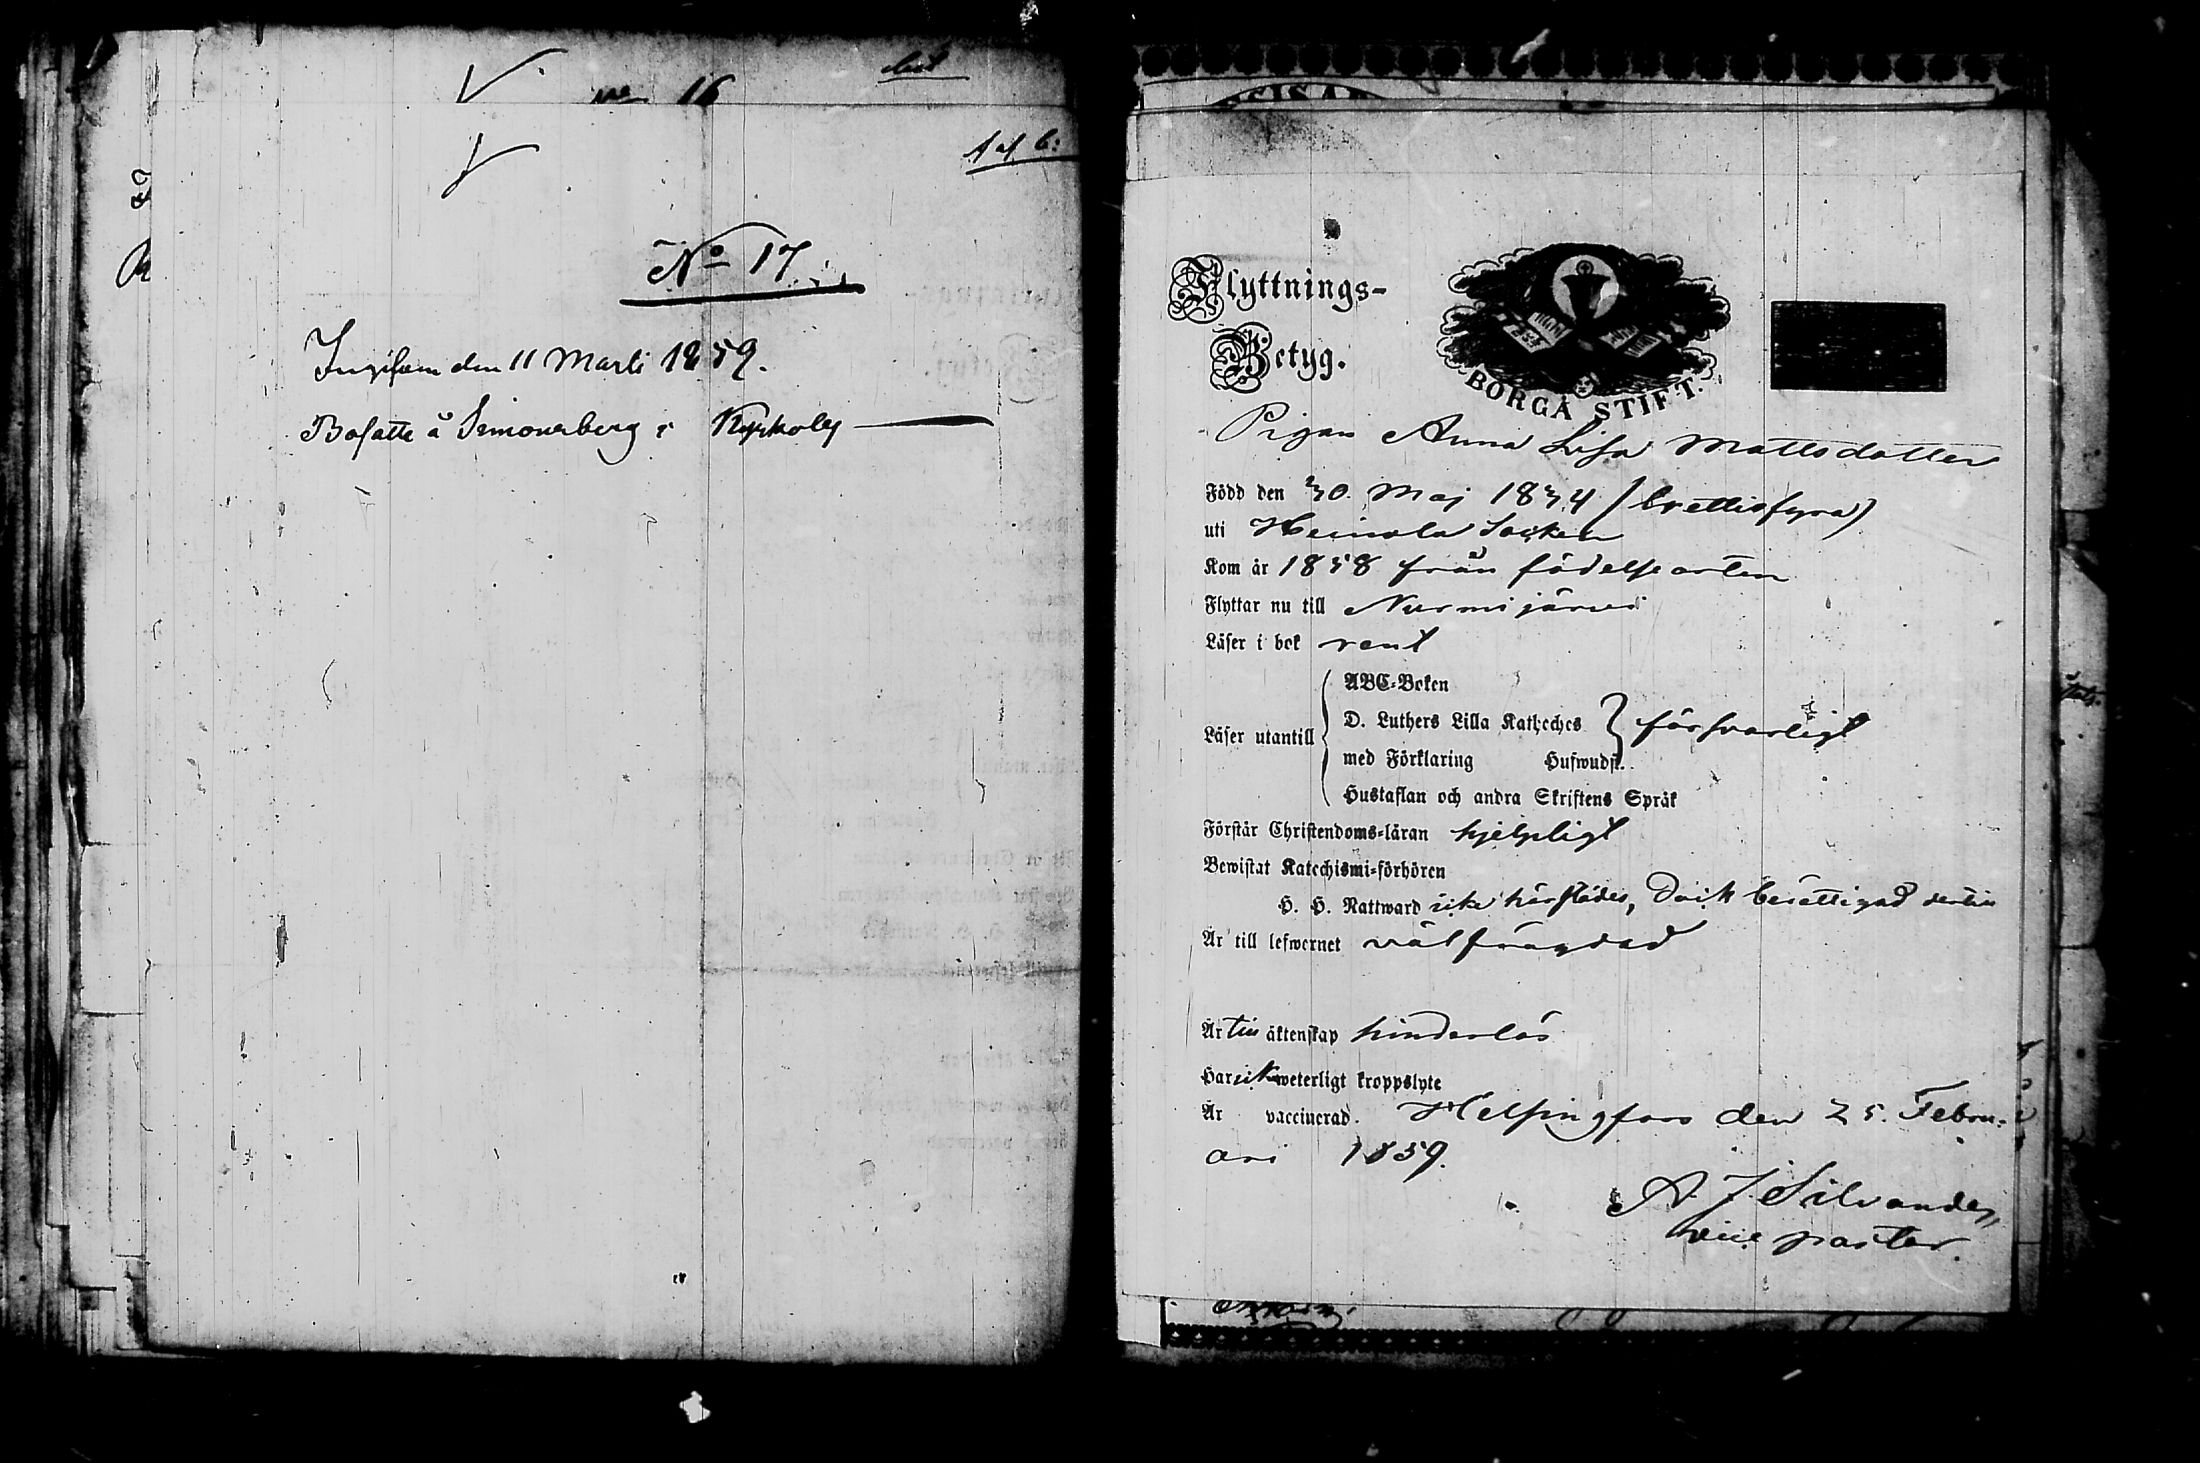 No 16
No 17.
Ingifven den 11 Marti 1859.
Bosatte å Simonsberg i Kyrkoby
Flyttnings-
Betyg.
BORGÅ STIFT.
Pigan Anna Lisa Mattsdotter
Född den 30. Maj 1834 (trettiofyra)
uti Heinola Socken
Kom år 1858 från födelseorten
Flyttar nu till Nurmijärvi
Läser i bok rent
ABC-Boken
D. Luthers Lilla Katheches
Läser utantill försvarligt
med Förklaring Hufwudst.
Hustaflan och andra Skriftens Språk
Förstår Christendoms-läran hjelpligt
Bewistat Katechismi-förhören
H. H. Nattward icke härstädes, Dock berättigad dertill
Är till lefwernet välfrägdad
Är till äktenskap hinderlös
Har ick weterligt kroppslyte
Är vaccinerad. Helsingfors den 25. Febru-
ari 1859.
A. J. Silvander,
vice pastor.